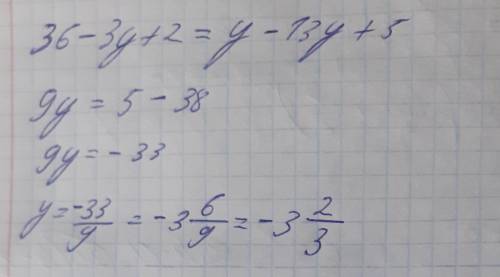 36 - 3y + 2 = y - 13y + 5
9y = 5 - 38
9y = - 33
y = -33/9 = -3 6/9 = -3 2/3